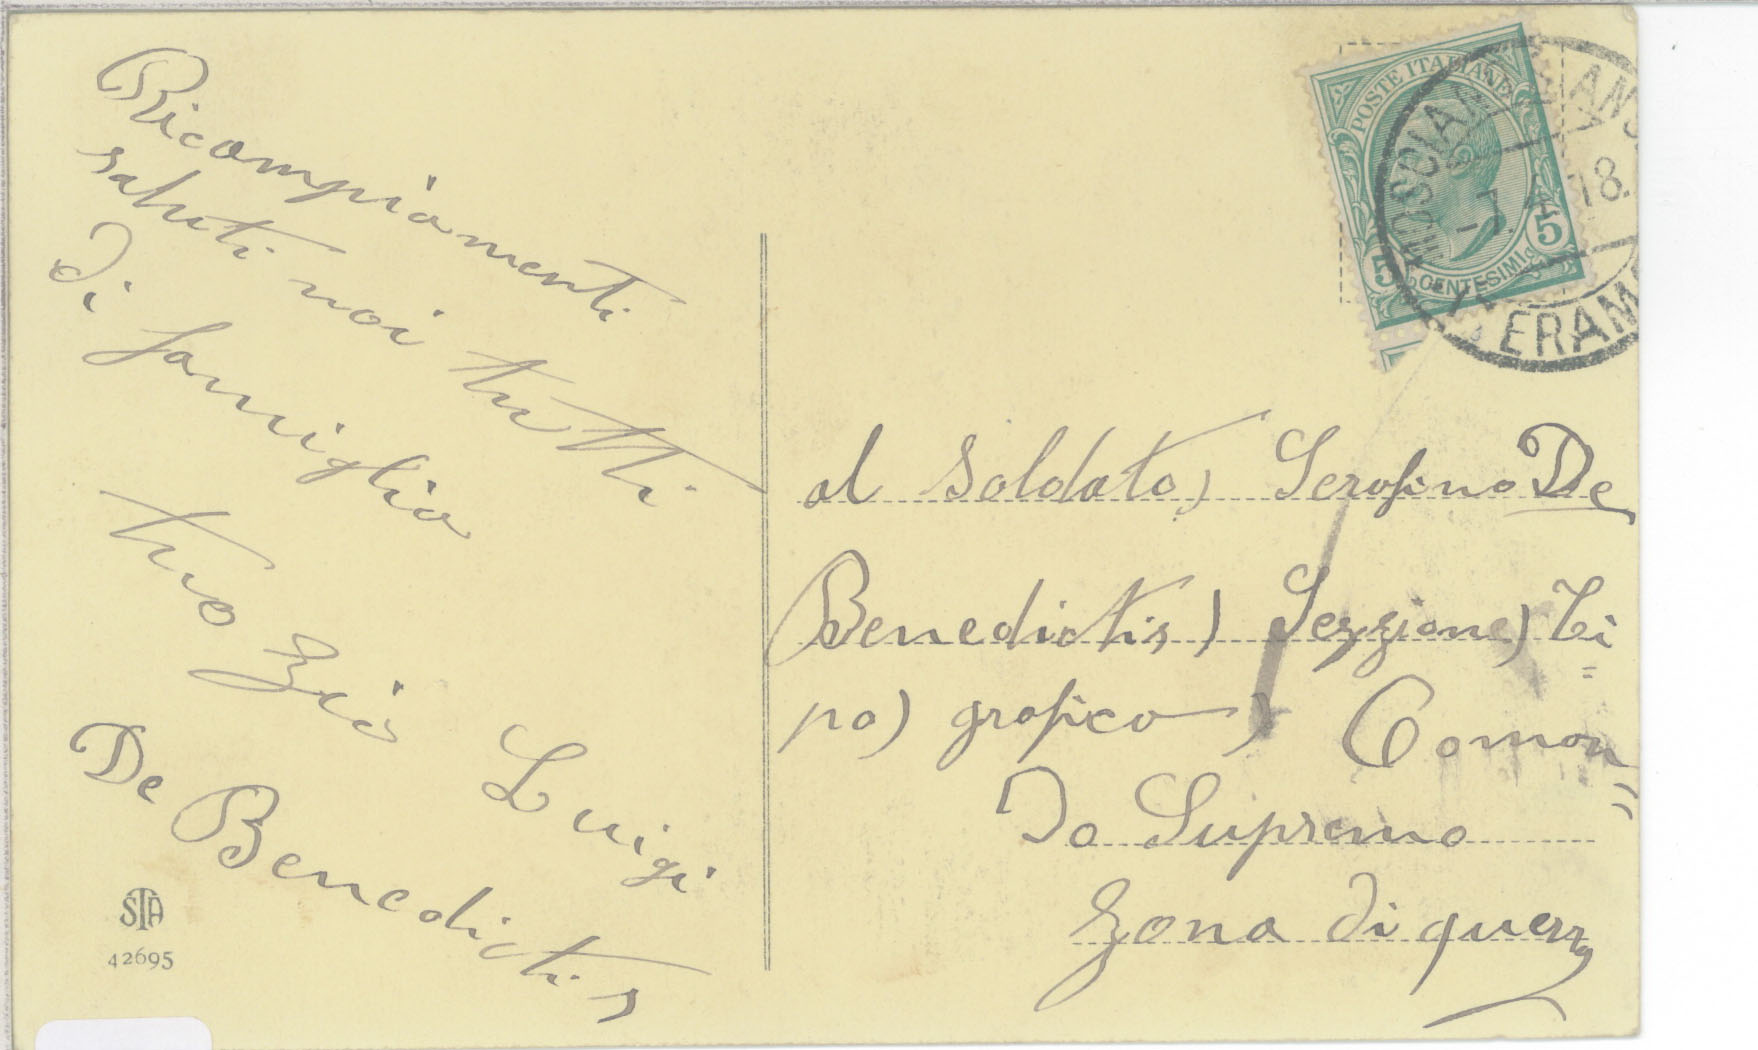 Ricompiamenti
saluti noi tutti
di famiglia
tuo zio Luigi
De Benedictis
STA
42695
POSTE ITALIANE
5 CENTESIMI 5
MOSCIAN
-3. 4. 18.
TERAM
al Soldato) Serafino De
Benedictis) Sezzione) Ti
po) grafico) Coman
do Supremo
Zona di guerra